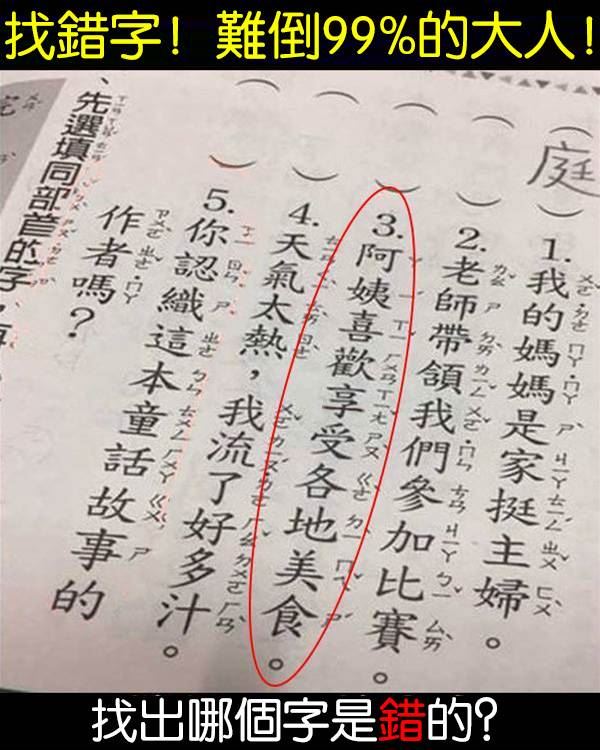 找錯字！難倒99%的大人！
庭
1.我的媽媽是家挺主婦。
2.老師帶領我們參加比賽。
3.阿姨喜歡享受各地美食。
4.天氣太熱，我流了好多汁。
5.你認織這本童話故事的
作者嗎？
、先選填同部首的字，再
找出哪個字是錯的？